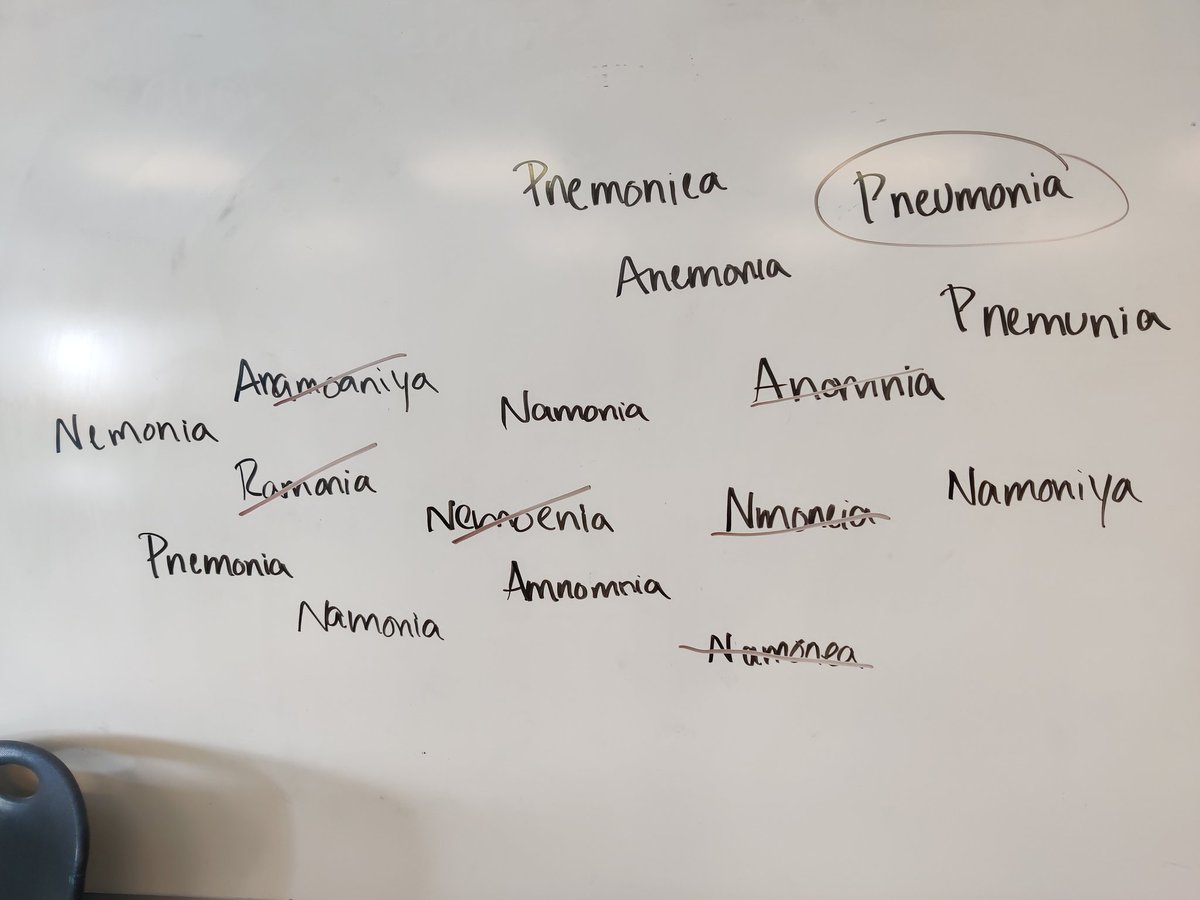 Pnemoniea
Pneumonia
Anemonia
Pnemunia
Anamoaniya
Anomnia
Namonia
Nemonia
Ramonia
Namoniya
Nemoenia
Nmoneia
Pnemonia
Amnomnia
Namonia
Namonea